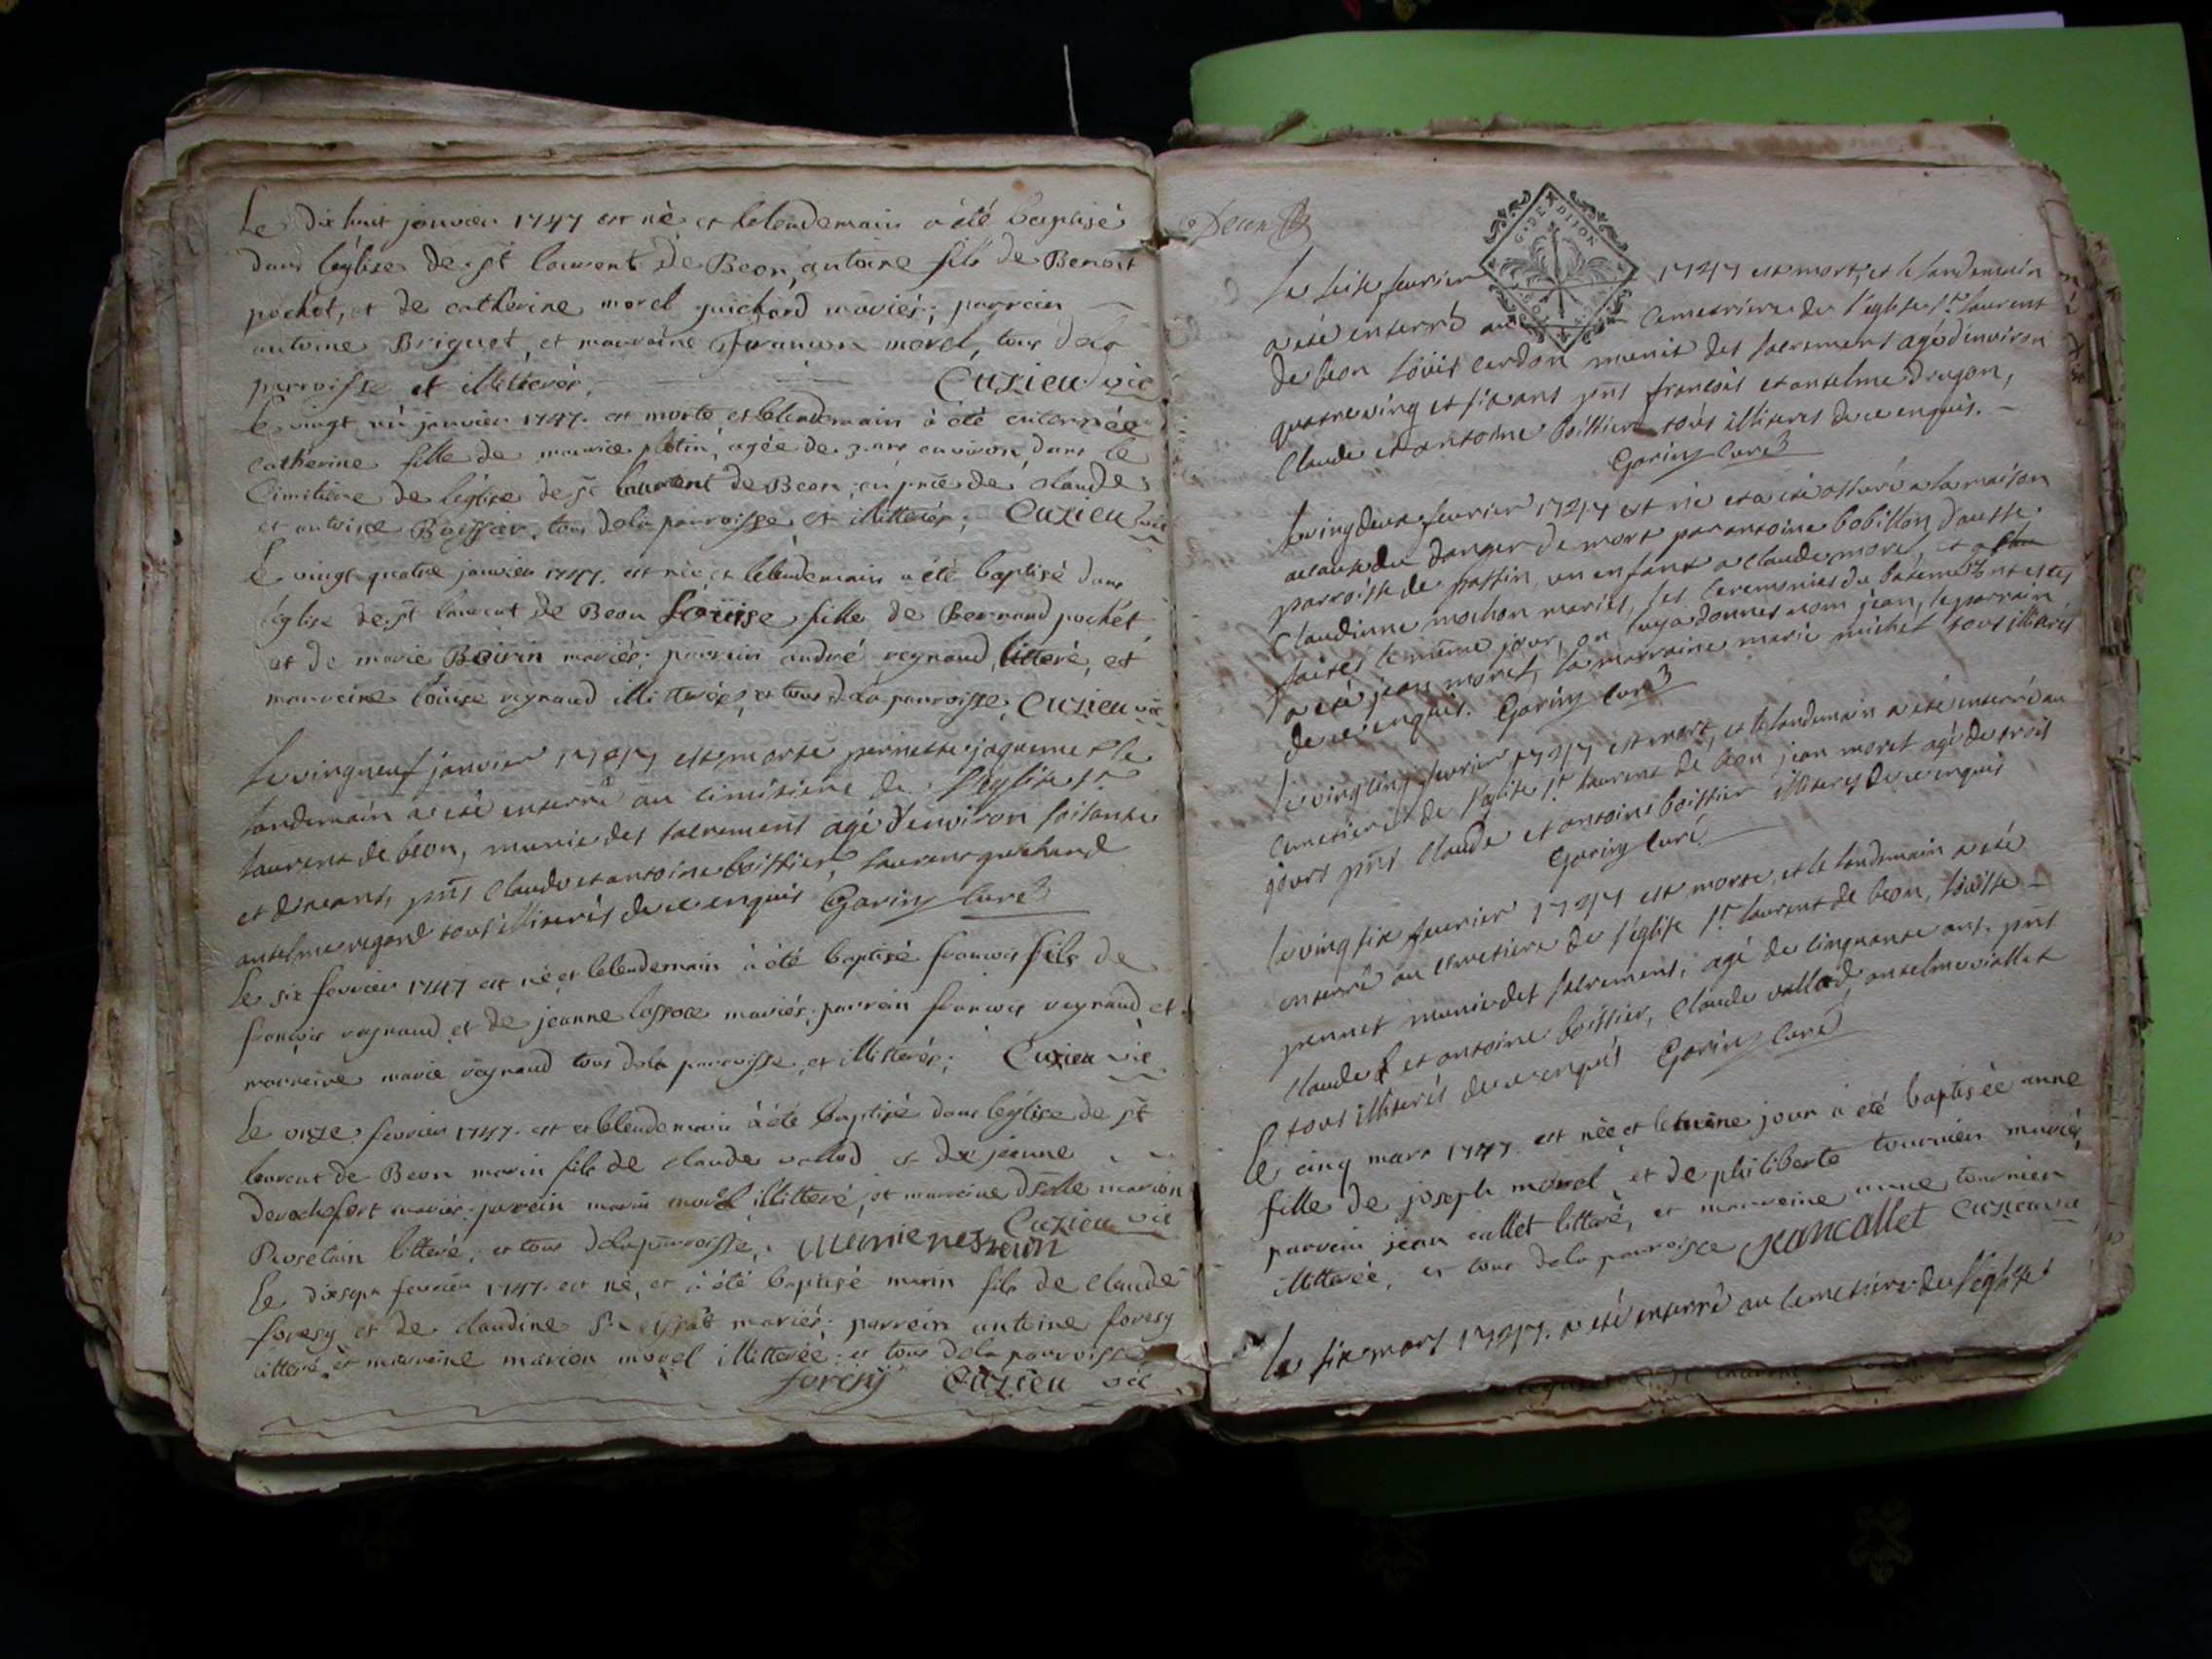 Le dix huit janvier 1747 est né et le lendemain a été baptisé
dans l'église de st laurent de Beon, antoine fils de Benoit
pochet, et de catherine morel guichard mariés; parrein
antoine Briguet, et marreine françoise morel, tous de la
parroisse et illitterés. Cuzieu vic
Le vingt un janvier 1747. est morte et le lendemain à été enterrée
catherine fille de maurice platin, agée de 3. ans environ, dans le
Cimitière de léglise de st laurent de Beon, en pnce de claude
et antoine Boissier, tous de la parroisse et illitterés; Cuzieu vic
Le vingt quatre janvier 1747. est née et le lendemain a été baptisé dans
léglise de st laurent de Beon Loüise fille de Bernard pochét
et de marie Boirin mariés; parrein andré reynaud, litteré, et
marreine loüise reynaud illitterés, et tous de la parroisse; Cuzieu vic
Le vingneuf janvier 1747 est morte pernette jaquemet le
landemain a été enterré au cimitiere de l'eglise st
laurent de beon, munie des sacrement agé d'environ soisante
et dix ans, pnts claude et antoine boissier, laurent guichard
anselme regard tous illiterés de ce enquis Garin curé
Le six fevrier 1747 est né et le lendemain à été baptisé françois fils de
françois reynaud et de jeanne lassoce mariés; parrein françois reynaud et
marreine marie reynaud tous de la parroisse et illitterés; Cuzieu vic
Le onze fevrier 1747. est et le lendemain à été baptisé dans léglise de st
laurent de Beon marin fils de claude vallod et de jeanne
derochefort mariés; parrein marin morel illitteré, et marreine dselle marion
Prosetain litterée, et tous de la parroisse; Cuzieu vic
Le dixsept fevrier 1747. est né, et à été baptisé marin fils de claude
foresy et de claudine mariés; parrein antoine foresy
litteré, et marreine marion morel illitterée; et tous de la parroisse
foresy Cuzieu vic
Le seise fevrier 1747 est mort, et le landemain
a été enterré au cemetriere de l'eglise st laurent
de beon loüis cardon munit des sacrement agé d'environ
quatreving et six ans pnts françois et anselme dragon,
Claude et antoine boissier tous illiterés de ce enquis.
Garin curé
Le vingdeux fevrier 1747 est né et a été assuré a la maison
acause du danger de mort par antoine bobillon d'ausse
parroisse de passin, un enfant a claude morel, et a
Claudinne mochon mariés, les ceremonies du bateme
faites le meme jour, on luy a donnés nom jean, le parrain
a été jean morel, la marraine marie michel tous illiterés
de ce enquis. Garin curé
Le vingcinq fevrier 1747 est mort, et le landemain a été enterré au
cemetiere de l'eglise st laurent de beon jean morel agé de trois
jours pnts claude et antoine boissier illiterés de ce enquis
Garin curé
Le vingsix fevrier 1747 est morte, et le landemain a été
enterré au cemetiere de l'eglise st laurent de beon, loüise
pennet munie des sacrement, agé de cinquante ans. pnts
claude et antoine boissier, claude vallod, anselme viollet
tous illiterés de ce enquis Garin curé
Le cinq mars 1747. est née et le même jour à été baptisée anne
fille de joseph morel et de philiberte tournier mariés
parrein jean callet litteré, et marreine anne tournier
illitterée, et tous de la parroisse jean callet Cuzieu vic
Le six mars 1747. a été enterré au cemetiere de l'eglise